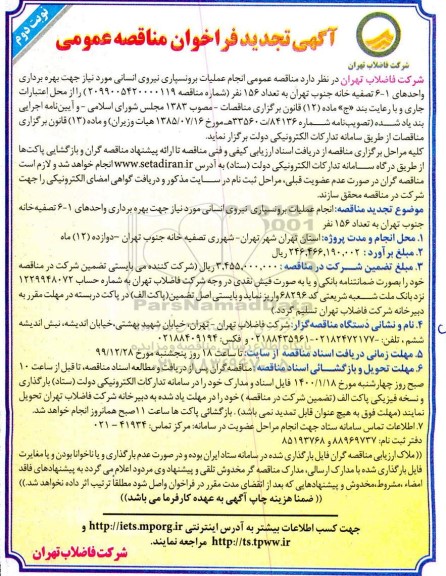 نوبت دوم
آگهی تجدید فراخوان مناقصه عمومی
شرکت فاضلاب تهران
شرکت فاضلاب تهران در نظر دارد مناقصه عمومی انجام عملیات برونسپاری نیروی انسانی مورد نیاز جهت بهره برداری
واحدهای ۱-۶ تصفیه خانه جنوب تهران به تعداد ۱۵۶ نفر (شماره مناقصه ۲۰۹۹۰۰۵۴۲۰۰۰۰۱۱۹) را از محل اعتبارات
جاری و با رعایت بند «ج» ماده (۱۲) قانون برگزاری مناقصات - مصوب ۱۳۸۳ مجلس شورای اسلامی - و آیین‌نامه اجرایی
بند یاد شده (تصویب‌نامه شماره ۸۴۱۳۶/ت۳۳۵۶۰هـ مورخ ۱۳۸۵/۰۷/۱۶ هیات وزیران) و ماده (۱۳) قانون برگزاری
مناقصات از طریق سامانه تدارکات الکترونیکی دولت برگزار نماید.
کلیه مراحل برگزاری مناقصه از دریافت اسناد ارزیابی کیفی و فنی مناقصه تا ارائه پیشنهاد مناقصه گران و بازگشایی پاکت‌ها
از طریق درگاه سامانه تدارکات الکترونیکی دولت (ستاد) به آدرس www.setadiran.ir انجام خواهد شد و لازم است
مناقصه گران در صورت عدم عضویت قبلی، مراحل ثبت نام در سایت مذکور و دریافت گواهی امضای الکترونیکی را جهت
شرکت در مناقصه محقق سازند.
موضوع تجدید مناقصه: انجام عملیات برونسپاری نیروی انسانی مورد نیاز جهت بهره برداری واحدهای ۱-۶ تصفیه خانه
جنوب تهران به تعداد ۱۵۶ نفر
۱. محل انجام و مدت پروژه: استان تهران شهر تهران- شهرری تصفیه خانه جنوب تهران -دوازده (۱۲) ماه
۲. مبلغ برآورد: ۲۴۶,۴۶۶,۱۹۰,۰۰۲ ریال
۳. مبلغ تضمین شرکت در مناقصه: ۳,۴۵۵,۰۰۰,۰۰۰ ریال (شرکت کننده می بایستی تضمین شرکت در مناقصه
خود را بصورت ضمانتنامه بانکی و یا به صورت فیش نقدی در وجه شرکت فاضلاب تهران به شماره حساب ۱۲۲۹۹۴۸۰۷۲
نزد بانک ملت شعبه شریعتی کد ۶۸۲۹۶ واریز نماید و بایستی اصل تضمین (پاکت الف) در پاکت دربسته در مهلت مقرر به
دبیرخانه شرکت فاضلاب تهران تسلیم گردد.)
۴. نام و نشانی دستگاه مناقصه‌گزار: شرکت فاضلاب تهران - تهران، خیابان شهید بهشتی، خیابان اندیشه، نبش اندیشه
ششم، تلفن: ۰۲۱۸۲۴۷۲۱۷۷-۰۲۱۸۸۴۳۵۹۶۱ و فکس ۰۲۱۸۸۴۰۹۱۹۴
۵. مهلت زمانی دریافت اسناد مناقصه از سایت: تا ساعت ۱۸ روز پنجشنبه مورخ ۹۹/۱۲/۲۸
۶. مهلت تحویل و بازگشائی اسناد مناقصه: مناقصه‌گران باید پس از دریافت و مطالعه اسناد مناقصه، تا قبل از ساعت ۱۰
صبح روز چهارشنبه مورخ ۱۴۰۰/۱/۱۸ فایل اسناد و مدارک خود را در سامانه تدارکات الکترونیکی دولت (ستاد) بارگذاری
و نسخه فیزیکی پاکت الف (تضمین شرکت در مناقصه) خود را در مهلت یاد شده به دبیرخانه شرکت فاضلاب تهران تحویل
نمایند (مهلت فوق به هیچ عنوان قابل تمدید نمی باشد). بازگشائی پاکت ها ساعت ۱۱ صبح همانروز انجام خواهد شد.
۷. اطلاعات تماس سامانه ستاد جهت انجام مراحل عضویت در سامانه: مرکز تماس: ۴۱۹۳۴ - ۰۲۱
دفتر ثبت نام: ۸۸۹۶۹۷۳۷ و ۸۵۱۹۳۷۶۸
((ملاک ارزیابی مناقصه گران فایل بارگذاری شده در سامانه ستاد ایران بوده و در صورت عدم بارگذاری و یا ناخوانا بودن و یا مغایرت
فایل بارگذاری شده با مدارک ارسالی، مدارک مناقصه گر مخدوش تلقی و پیشنهاد وی مردود اعلام می گردد به پیشنهادهای فاقد
امضاء، مشروط، مخدوش و پیشنهادهایی که بعد از انقضای مدت مقرر در فراخوان واصل شود مطلقا ترتیب اثر داده نخواهد شد.))
(( ضمنا هزینه چاپ آگهی به عهده کارفرما می باشد))
جهت کسب اطلاعات بیشتر به آدرس اینترنتی http://iets.mporg.ir و
http://ts.tpww.ir مراجعه نمایند.
شرکت فاضلاب تهران